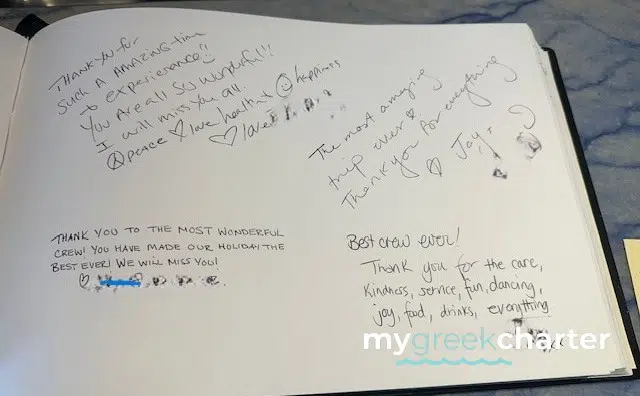 THANK YOU for
SUCH A AMAZING time
& experience!!
You ARE all SO WONDERFUL!!
I will miss you all.
PEACE love health & happiness
love
The most amazing
trip ever
Thank you for everything
Joy
THANK YOU TO THE MOST WONDERFUL
CREW! YOU HAVE MADE OUR HOLIDAY THE
BEST EVER! WE WILL MISS YOU!
Best crew ever!
Thank you for the care,
kindness, service, fun, dancing,
joy, food, drinks, everything
mygreekcharter